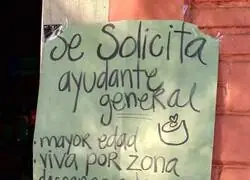 Se Solicita
ayudante
general
• mayor edad
• viva por zona